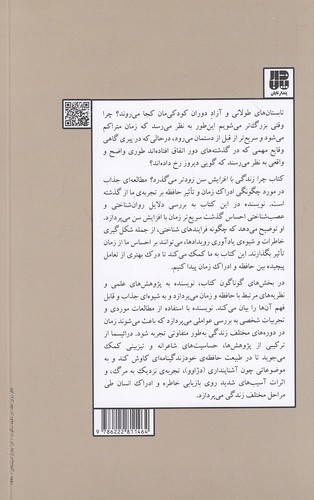 پندار تابان
تابستان‌های طولانی و آزاد دوران کودکی‌مان کجا می‌روند؟ چرا
وقتی بزرگ‌تر می‌شویم این‌طور به نظر می‌رسد که زمان متراکم
می‌شود و سریع‌تر از قبل از دستمان می‌رود، درحالی‌که در پیری گاهی
وقایع مهمی که در گذشته‌های دور اتفاق افتاده‌اند طوری واضح و
واقعی به نظر می‌رسند که گویی دیروز رخ داده‌اند؟
کتاب چرا زندگی با افزایش سن زودتر می‌گذرد؟ مطالعه‌ای جذاب
در مورد چگونگی ادراک زمان و تأثیر حافظه بر تجربه‌ی ما از گذشته
است. نویسنده در این کتاب به بررسی دلایل روان‌شناختی و
عصب‌شناختی احساس گذشت سریع‌تر زمان با افزایش سن می‌پردازد.
او توضیح می‌دهد که چگونه فرایندهای شناختی، از جمله شکل‌گیری
خاطرات و شیوه‌ی یادآوری رویدادها، می‌توانند بر احساس ما از زمان
تأثیر بگذارند. این کتاب به ما کمک می‌کند تا درک بهتری از تعامل
پیچیده بین حافظه و ادراک زمان پیدا کنیم.
در بخش‌های گوناگون کتاب، نویسنده به پژوهش‌های علمی و
نظریه‌های مرتبط با حافظه و زمان می‌پردازد و به شیوه‌ای جذاب و قابل
فهم آن‌ها را بیان می‌کند. نویسنده با استفاده از مطالعات موردی و
تجربیات شخصی به بررسی عواملی می‌پردازد که باعث می‌شوند زمان
در دوره‌های مختلف زندگی به‌طور متفاوتی تجربه شود. درائیسما از
ترکیبی از پژوهش‌ها، حساسیت‌های شاعرانه و تیزبینی کمک
می‌جوید تا در طبیعت حافظه‌ی خودزندگینامه‌ای کاوش کند و به
موضوعاتی چون آشناپنداری (دژاوو)، تجربه‌ی نزدیک به مرگ، و
اثرات آسیب‌های شدید روی بازیابی خاطره و ادراک انسان طی
مراحل مختلف زندگی می‌پردازد.
9 786222 811464